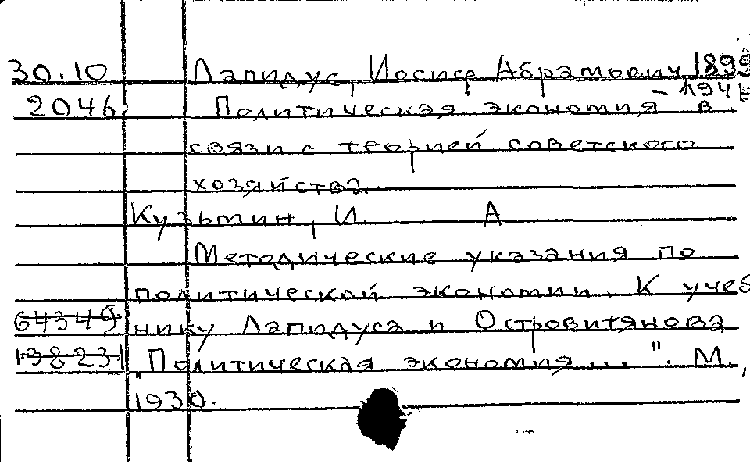 30.10 Лапидус, Иосиф Абрамович, 1899
2046 Политическая экономия в
связи с теорией советского
хозяйства.
Кузьмин, И. А
Методические указания по
политической экономии. К учеб
64349 нику Лапидуса и Островитянова
198231 "Политическая экономия... ". М.,
1930.